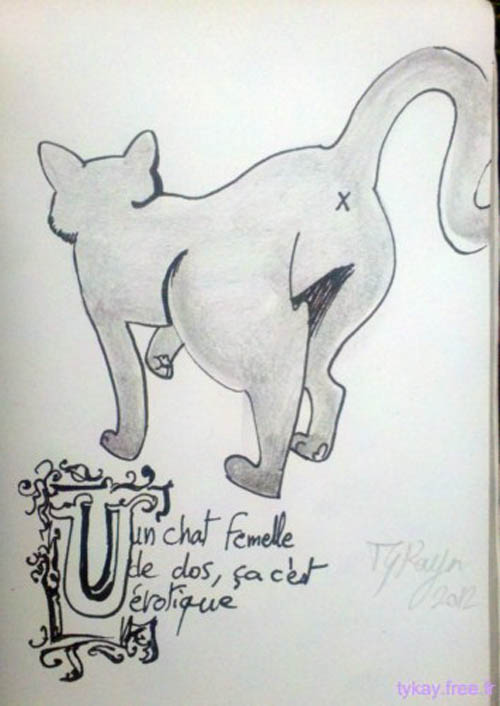 X
Un chat femelle
de dos, ça c'est
érotique
2012
tykay.free.fr